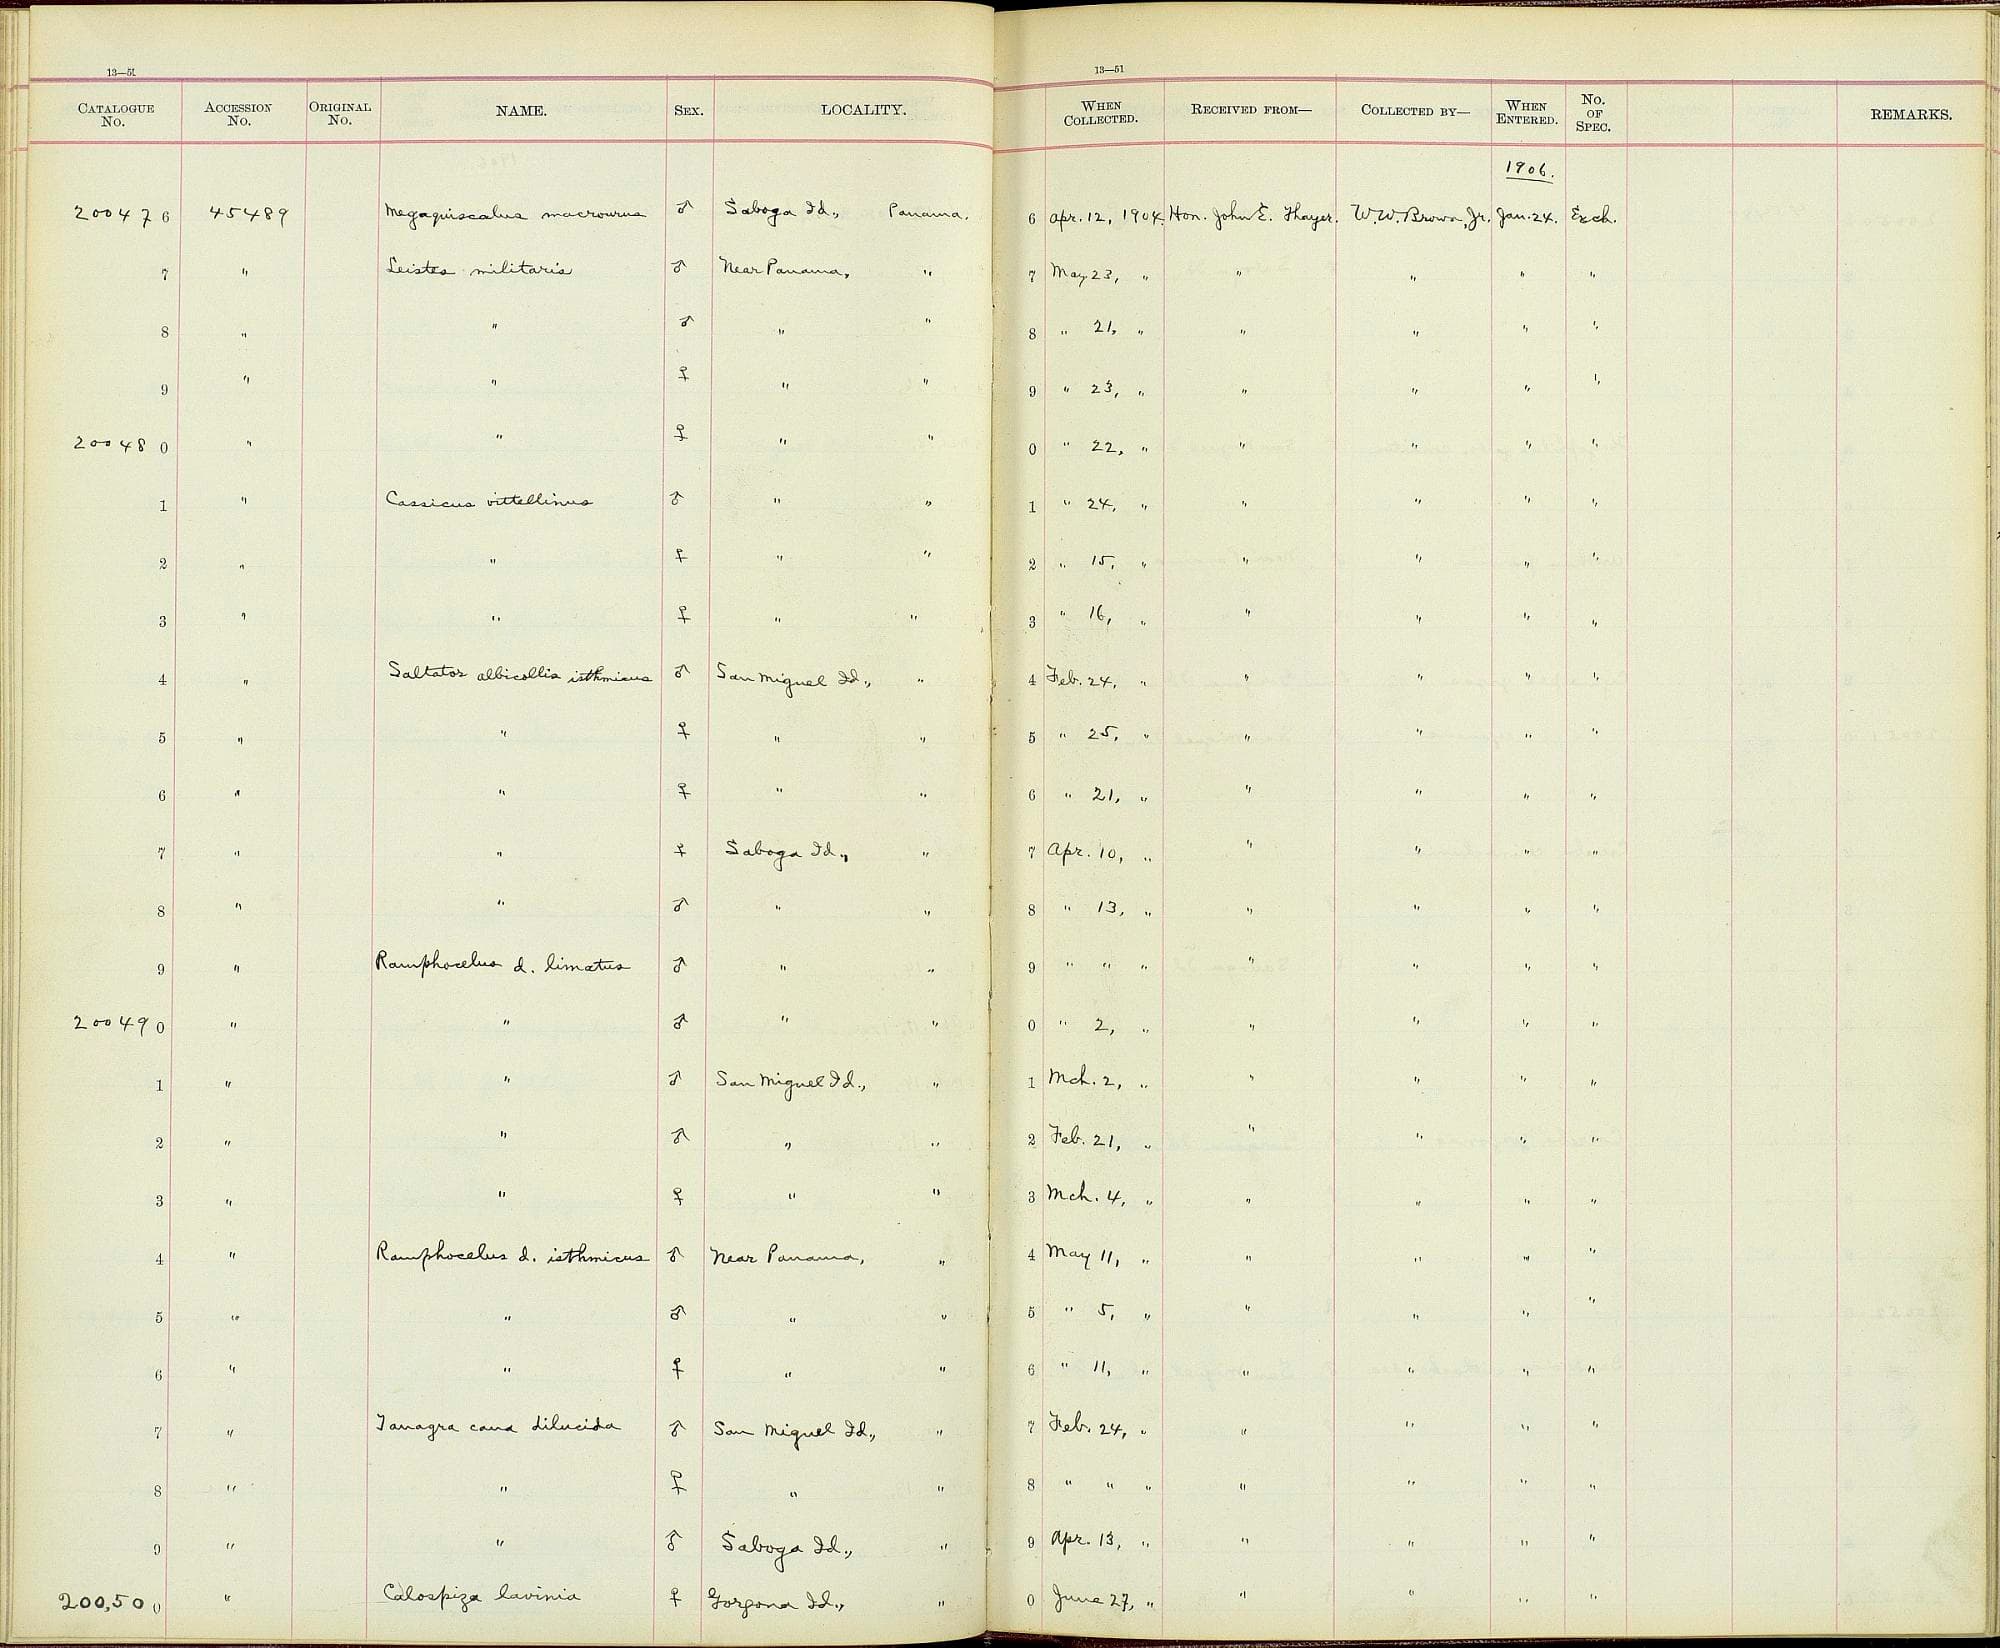 13—51 13—51
CATALOGUE No. ACCESSION No. ORIGINAL No. NAME. SEX. LOCALITY. WHEN COLLECTED. RECEIVED FROM— COLLECTED BY— WHEN ENTERED. No. OF SPEC. REMARKS.
1906.
20047 6 45489 Megaquiscalus macrourus ♂ Saboga Id., Panama. 6 Apr. 12, 1904. Hon. John E. Thayer. W.W. Brown, Jr. Jan. 24. Exch.
7 " Leistes militaris ♂ Near Panama, " 7 May 23, " " " " "
8 " " ♂ " " 8 " 21, " " " " "
9 " " ♀ " " 9 " 23, " " " " "
20048 0 " " ♀ " " 0 " 22, " " " " "
1 " Cassicus vittellinus ♂ " " 1 " 24, " " " " "
2 " " ♀ " " 2 " 15, " " " " "
3 " " ♀ " " 3 " 16, " " " " "
4 " Saltator albicollis isthmicus ♂ San Miguel Id., " 4 Feb. 24, " " " " "
5 " " ♀ " " 5 " 25, " " " " "
6 " " ♀ " " 6 " 21, " " " " "
7 " " ♀ Saboga Id., " 7 Apr. 10, " " " " "
8 " " ♂ " " 8 " 13, " " " " "
9 " Ramphocelus d. limatus ♂ " " 9 " " " " " " "
20049 0 " " ♂ " " 0 " 2, " " " " "
1 " " ♂ San Miguel Id., " 1 Mch. 2, " " " " "
2 " " ♂ " " 2 Feb. 21, " " " " "
3 " " ♀ " " 3 Mch. 4, " " " " "
4 " Ramphocelus d. isthmicus ♂ Near Panama, " 4 May 11, " " " " "
5 " " ♂ " " 5 " 5, " " " " "
6 " " ♀ " " 6 " 11, " " " " "
7 " Tanagra cana dilucida ♂ San Miguel Id., " 7 Feb. 24, " " " " "
8 " " ♀ " " 8 " " " " " " "
9 " " ♂ Saboga Id., " 9 Apr. 13, " " " " "
200,50 0 " Calospiza lavinia ♀ Gorgona Id., " 0 June 27, " " " " "